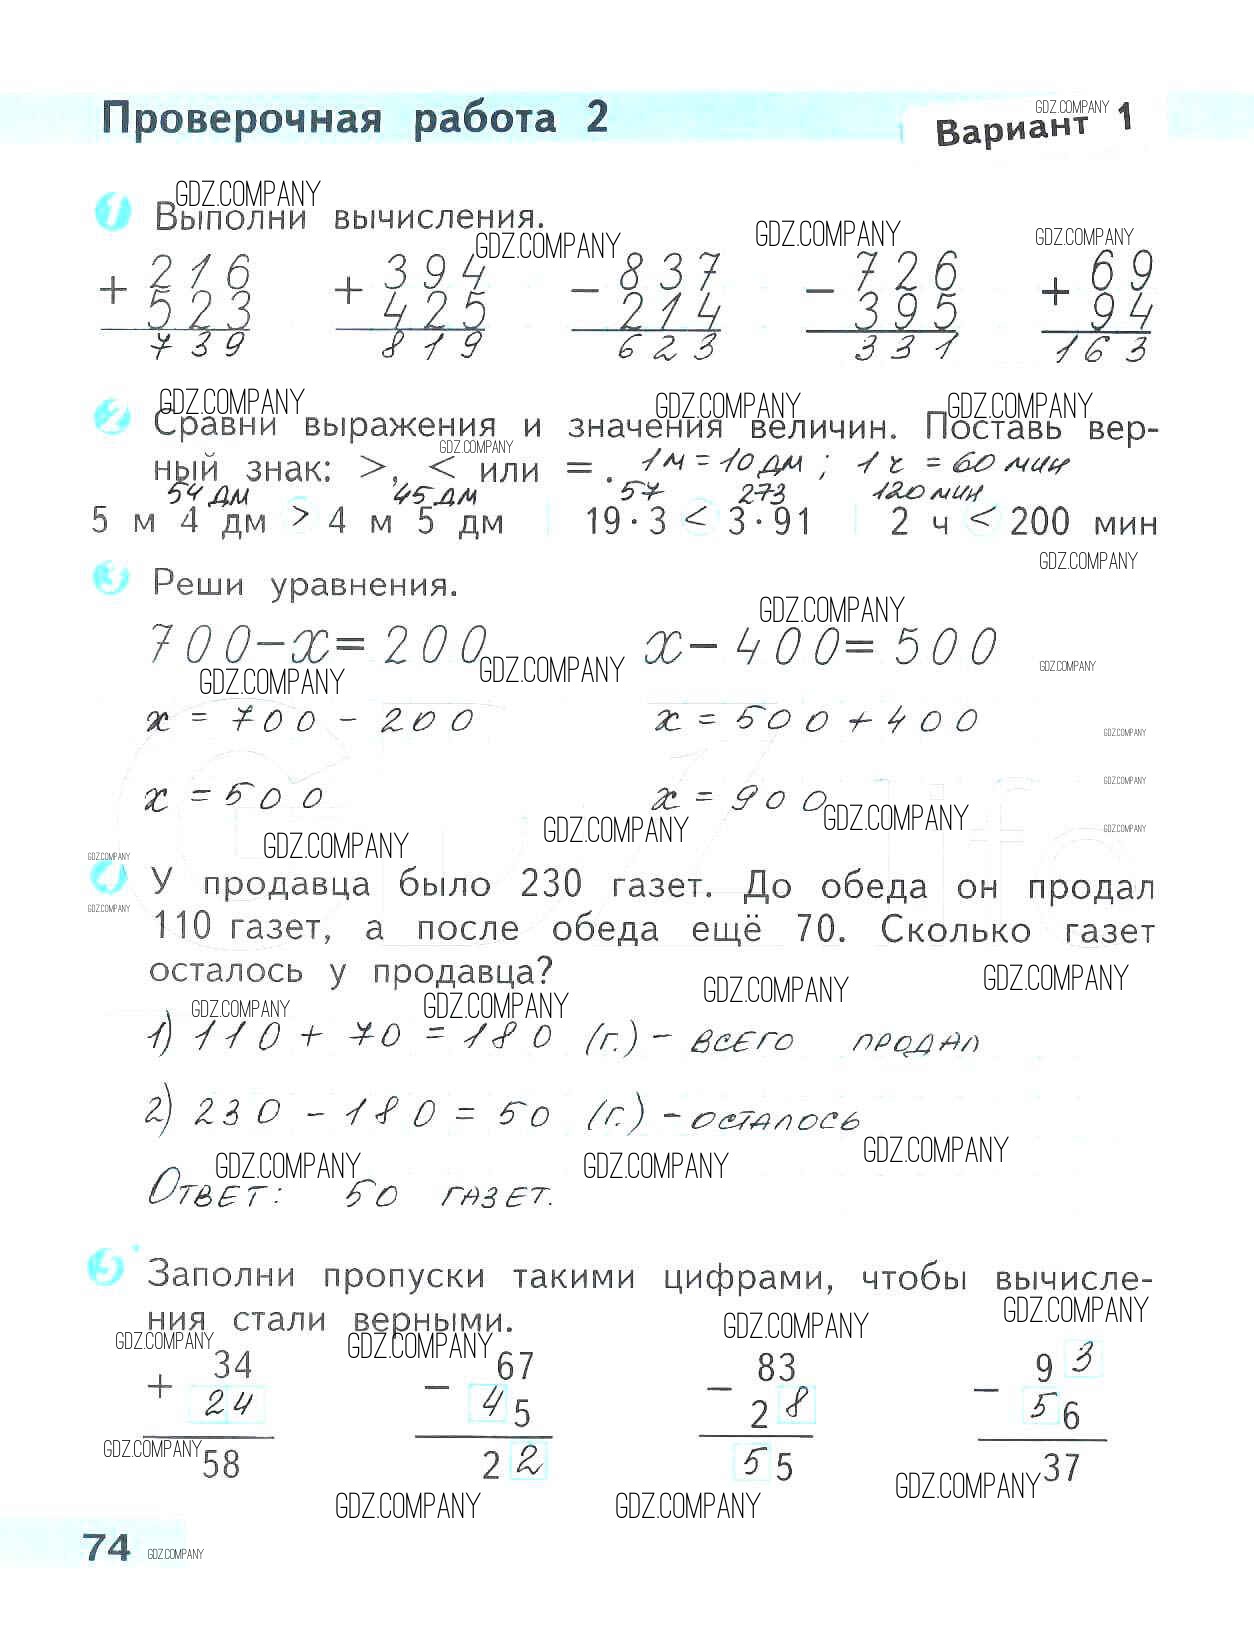 Проверочная работа 2
GDZ.COMPANY
Вариант 1
GDZ.COMPANY
1 Выполни вычисления.
GDZ.COMPANY GDZ.COMPANY GDZ.COMPANY
+ 216 + 394 - 837 - 726 + 69
523 425 214 395 94
739 819 623 331 163
GDZ.COMPANY GDZ.COMPANY GDZ.COMPANY
2 Сравни выражения и значения величин. Поставь вер-
GDZ.COMPANY
ный знак: >, < или = . 1 м = 10 дм ; 1 ч = 60 мин
54 дм 45 дм 57 273 120 мин
5 м 4 дм > 4 м 5 дм 19 · 3 < 3 · 91 2 ч < 200 мин
GDZ.COMPANY
3 Реши уравнения.
GDZ.COMPANY
700 - x = 200 x - 400 = 500
GDZ.COMPANY GDZ.COMPANY GDZ.COMPANY
x = 700 - 200 x = 500 + 400
GDZ.COMPANY
GDZ.COMPANY
x = 500 x = 900
GDZ.COMPANY GDZ.COMPANY GDZ.COMPANY GDZ.COMPANY
GDZ.COMPANY
4 У продавца было 230 газет. До обеда он продал
GDZ.COMPANY
110 газет, а после обеда ещё 70. Сколько газет
осталось у продавца?
GDZ.COMPANY GDZ.COMPANY GDZ.COMPANY GDZ.COMPANY
1) 110 + 70 = 180 (г.) - всего продал
2) 230 - 180 = 50 (г.) - осталось
GDZ.COMPANY GDZ.COMPANY GDZ.COMPANY
Ответ: 50 газет.
5 Заполни пропуски такими цифрами, чтобы вычисле-
ния стали верными.
GDZ.COMPANY GDZ.COMPANY GDZ.COMPANY GDZ.COMPANY
+ 34 - 67 - 83 - 93
24 45 28 56
58 22 55 37
GDZ.COMPANY GDZ.COMPANY GDZ.COMPANY GDZ.COMPANY
74 GDZ.COMPANY